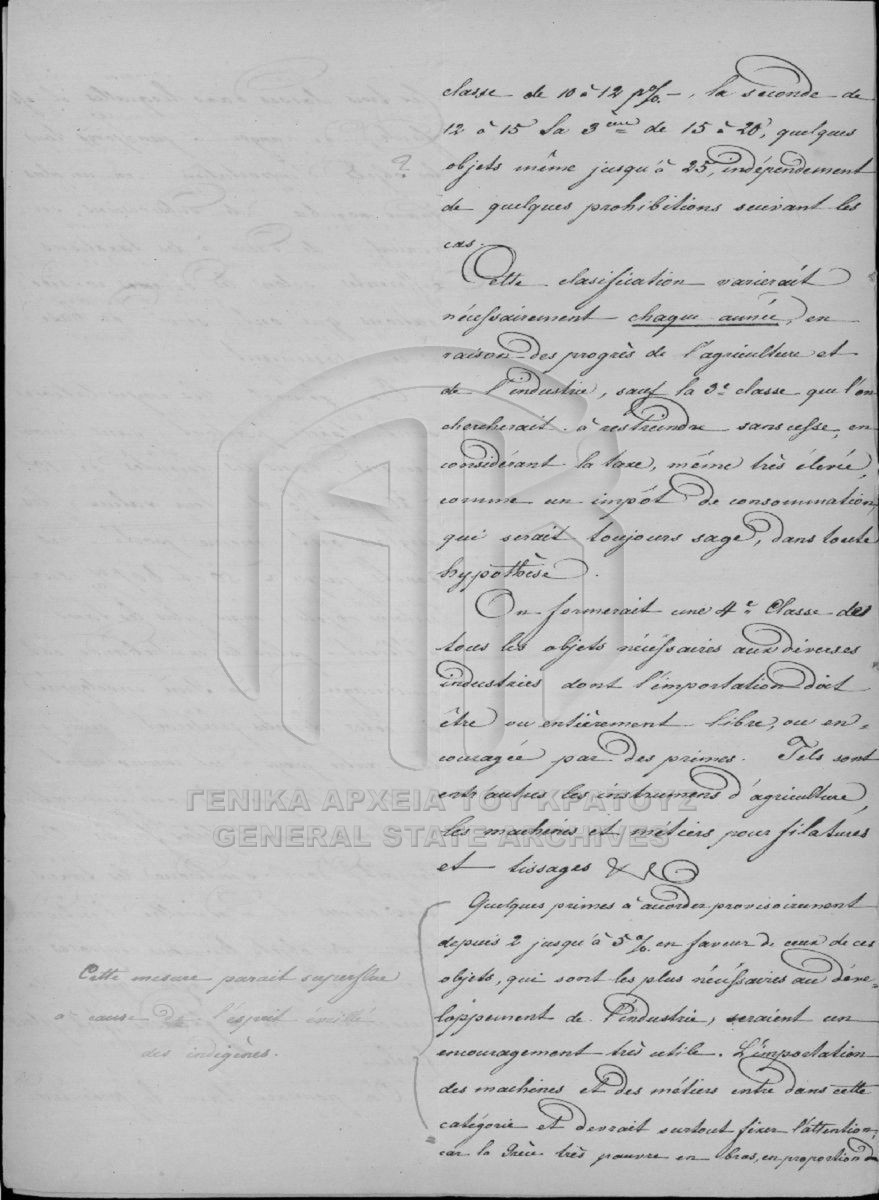 classe de 10 à 12 p%. -, la seconde de
12 à 15 la 3ème de 15 à 20, quelques
?
objets même jusqu'à 25, indépendement
de quelques prohibitions suivant les
cas.
Cette clasification varierait
nécessairement chaque année, en
raison des progrès de l'agriculture et
de l'industrie, sauf la 3e classe que l'on
chercherait à restreindre sans cesse, en
considérant la taxe, même très élevée,
comme un impôt de consommation,
qui serait toujours sage, dans toute
hypothèse.
On formerait une 4e Classe des
tous les objets nécessaires aux diverses
industries dont l'importation doit
être ou entièrement libre, ou en=
couragée par des primes. Tels sont
entr'autres les instrumens d'agriculture,
les machines et métiers pour filatures
et tissages & &
Quelques primes à accorder provisoirement
depuis 2 jusqu'à 5 %. en faveur de ceux de ces
objets, qui sont les plus nécessaires au déve=
loppement de l'industrie, seraient un
encouragement très utile. L'importation
des machines et des métiers entre dans cette
catégorie et devrait surtout fixer l'attention,
car la Grèce très pauvre en bras, en proportion d
Cette mesure parait superflue
a cause de l'esprit éveillé
des indigènes.
ΓΕΝΙΚΑ ΑΡΧΕΙΑ ΤΟΥ ΚΡΑΤΟΥΣ
GENERAL STATE ARCHIVES